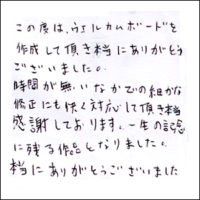 この度は、ウェルカムボードを
作成して頂き本当にありがとう
ございました。
時間が無いなかでの細かな
修正にも快く対応して頂き本当
感謝しております。一生の記念
に残る作品となりました。
本当にありがとうございました